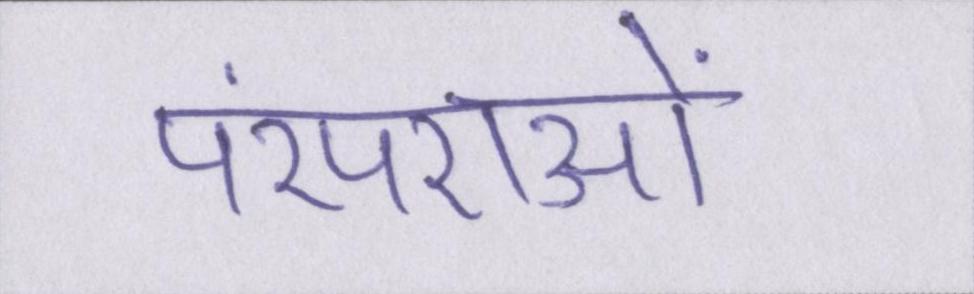 पंरपराओं